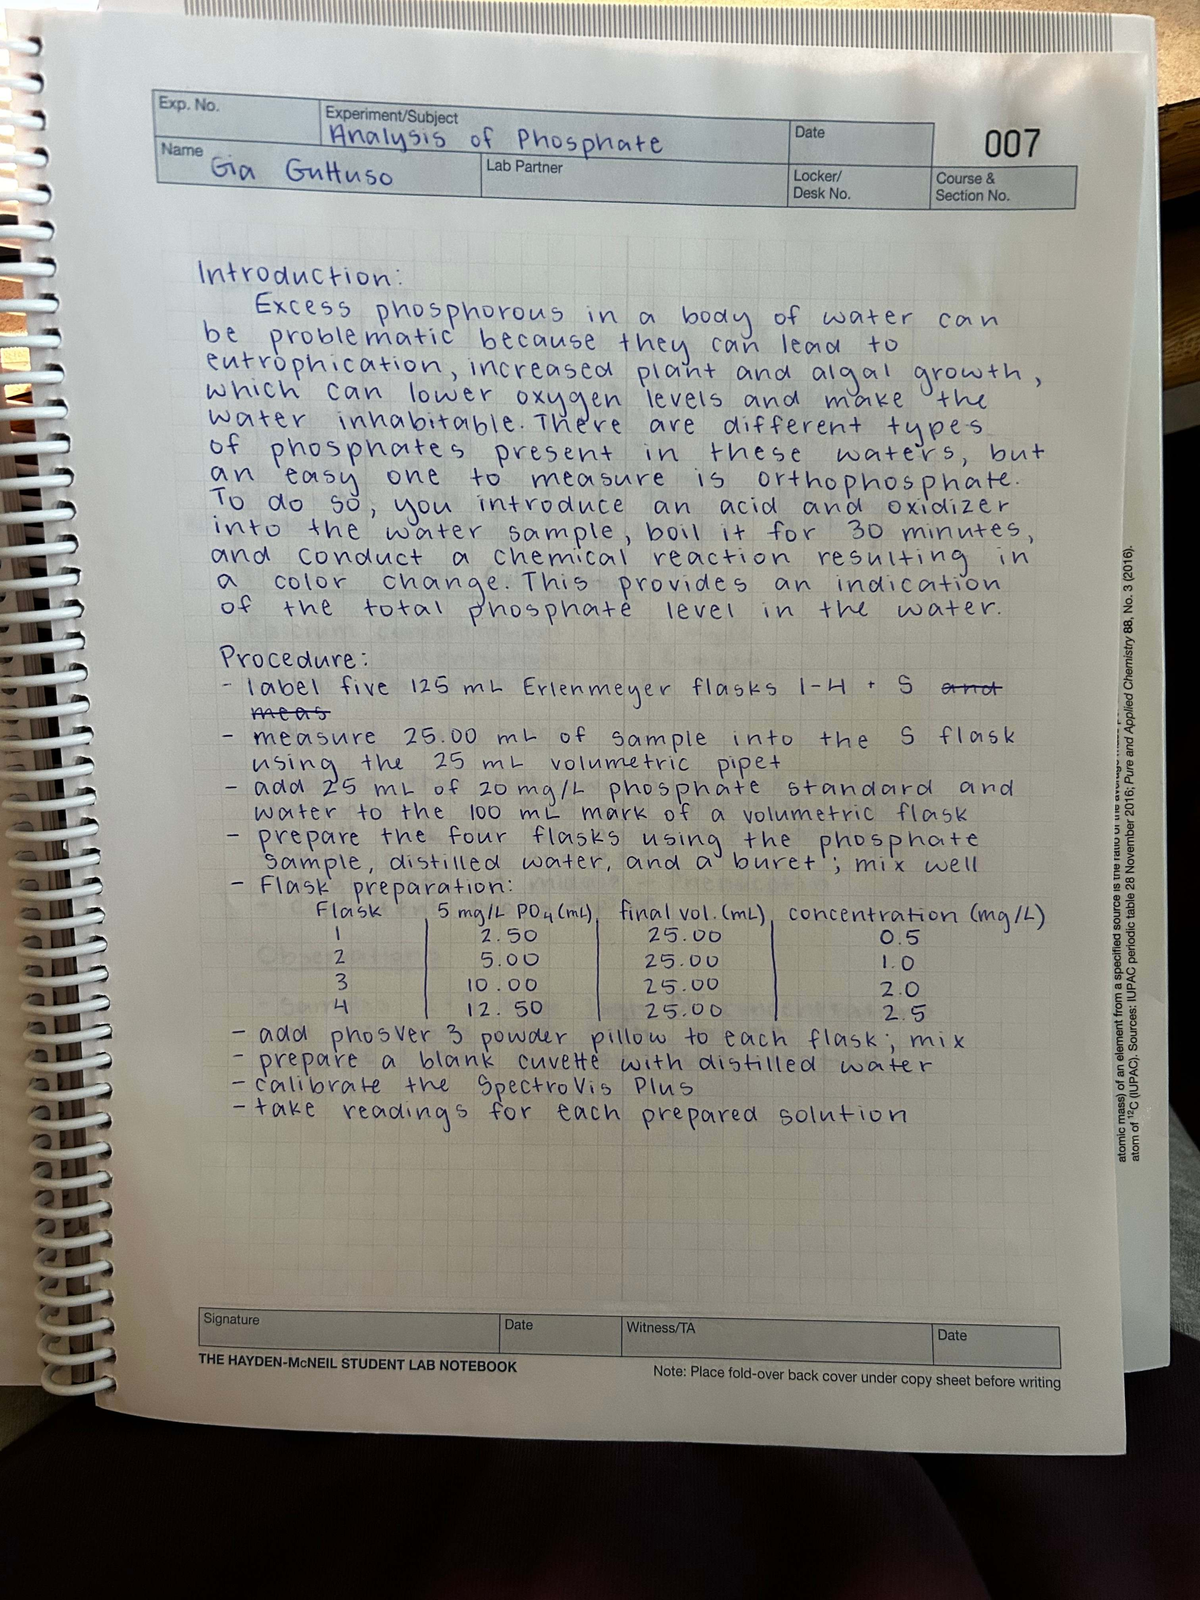 Exp. No.
Experiment/Subject
Analysis of Phosphate
Date
007
Name
Gia Guttuso
Lab Partner
Locker/
Desk No.
Course &
Section No.
Introduction:
Excess phosphorous in a body of water can
be problematic because they can lead to
eutrophication, increased plant and algal growth,
which can lower oxygen levels and make the
water inhabitable. There are different types
of phosphates present in these waters, but
an easy one to measure is orthophosphate.
To do so, you introduce an acid and oxidizer
into the water sample, boil it for 30 minutes,
and conduct a chemical reaction resulting in
a color change. This provides an indication
of the total phosphate level in the water.
Procedure:
- label five 125 mL Erlenmeyer flasks 1-4 + S and
meas
- measure 25.00 mL of sample into the S flask
using the 25 mL volumetric pipet
- add 25 mL of 20 mg/L phosphate standard and
water to the 100 mL mark of a volumetric flask
- prepare the four flasks using the phosphate
sample, distilled water, and a buret; mix well
- Flask preparation:
Flask 5 mg/L PO4 (mL) final vol. (mL) concentration (mg/L)
1 2.50 25.00 0.5
2 5.00 25.00 1.0
3 10.00 25.00 2.0
4 12.50 25.00 2.5
- add phosver 3 powder pillow to each flask; mix
- prepare a blank cuvette with distilled water
- calibrate the SpectroVis Plus
- take readings for each prepared solution
Signature
Date
Witness/TA
Date
THE HAYDEN-McNEIL STUDENT LAB NOTEBOOK
Note: Place fold-over back cover under copy sheet before writing
atomic mass) of an element from a specified source is the ratio of the average
atom of 12C (IUPAC). Sources: IUPAC periodic table 28 November 2016; Pure and Applied Chemistry 88, No. 3 (2016).